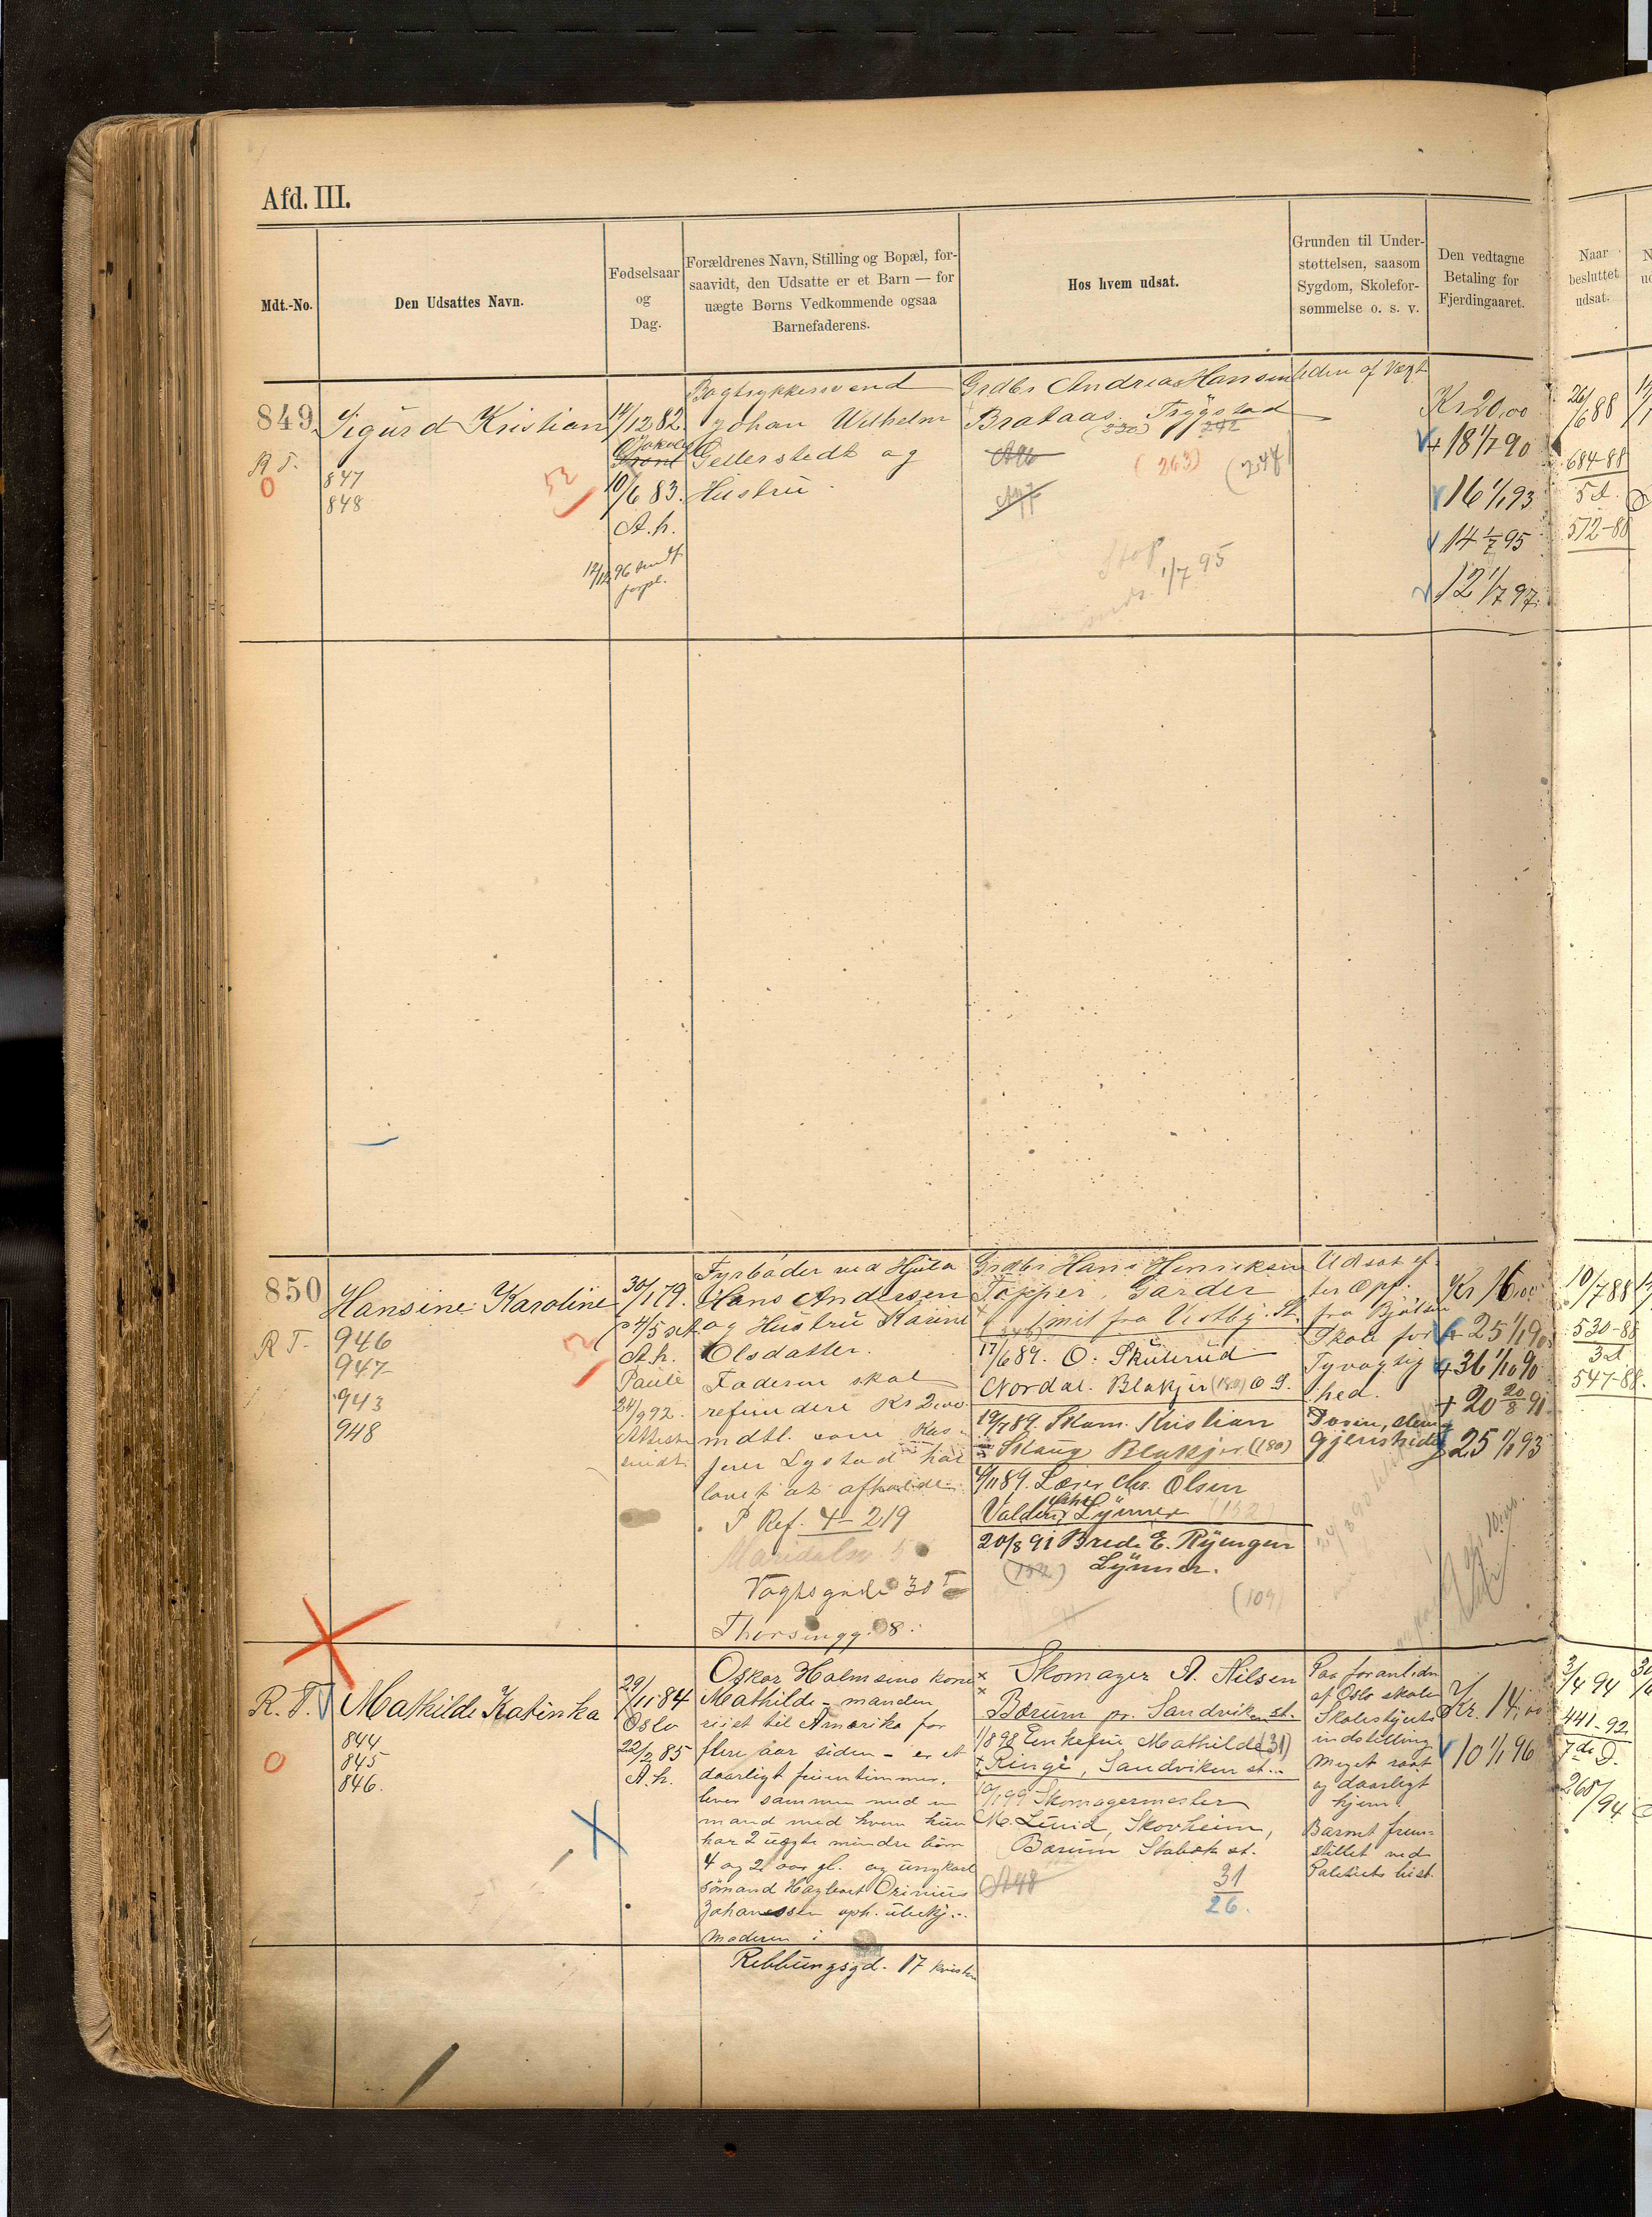 Afd. III.
Mdt.-No.
Den Udsattes Navn.
Fødselsaar
og
Dag.
Forældrenes Navn, Stilling og Bopæl, for-
saavidt, den Udsatte er et Barn — for
uægte Børns Vedkommende ogsaa
Barnefaderens.
Hos hvem udsat.
Grunden til Under-
støttelsen, saasom
Sygdom, Skolefor-
sømmelse o. s. v.
Den vedtagne
Betaling for
Fjerdingaaret.
Naar
besluttet
udsat.
849
Sigurd Kristian
R T.
0
847
848
52
14/12 82.
Jakob
10/6 83.
A. h.
12/12 96 sendt
forpl.
Bogtrykkersvend
Johan Wilhelm
Gellerstedt og
Hustru.
Grdbr Andreas Hansen
Brataas. Trygstad
(330) 242
A96
(263) (244)
Stop
1/7 95
Leden af Vægt
Kr 20,00
+ 18 1/7 90
16 1/1 93
14 1/7 95
12 1/7 97.
26/6 88
684-88
5 A.
512-88
850
Hansine Karoline
R T.
946
947
943
948
30/1 79.
A.h.
Paule
24/9 92.
Attest
sendt
Fyrbøder ved Hjula
Hans Andersen
og Hustru Karine
Olsdatter.
Faderen skal
refundere Kr 2,00
mdtl. som Kas-
serer Lystad har
lovet at afholde.
P Ref. 4-219
Maridalsv. 5
Vogtsgade 30
Thorsengg. 8.
Grdbr Hans Henriksen
Tøpper, Garder
1 mil fra Vestby. St.
17/6 89. O. Skulerud
Nordal. Blakjer (180) O S.
19/7 89 Skom. Kristian
Skaug Blakjer (180)
4/11 89. Læser Chr. Olsen
Valdens Lynner (132)
20/8 91 Brede E. Ryengen
(132) Lynner.
(109)
Udsat ef-
ter Opf.
fra Bjølsen
Skole for
Tyvagtig
hed.
Kr 16,00
+ 25 1/1 90
+ 36 1/10 90
+ 20 20/8 91
25 1/1 93
10/7 88
530-88
3 A
547-88.
R. T.
Mathilde Katinka
0
844
845
846.
29/11 84
Oslo
22/2 85
A. h.
Oskar Halmsens kone
Mathilde - manden
rejst til Amerika for
flere aar siden - er et
daarligt fruentimmer.
lever sammen med en
mand med hvem hun
har 2 uægte mindre børn
4 og 2 aar gl. og ungkarl
sømand Hagbart
Johanessen oph. ubekj.-
Moderen i
Rebbungsgd. 17 kvisten
Skomager A. Nilsen
Bærum pr. Sandviken st.
1/8 98 Enkefru Mathilde (31)
Ringe, Sandviken st.
10/1 99 Skomagermester
M. Lund, Skovheim,
Bærum Stabæk st.
A48
31
26.
Paa foranledn
af Oslo skoles
Skolestyrets
indstilling
Meget raat
og daarligt
hjem.
Barnet frem-
stillet ved
Politiets bist.
Kr. 14,00
10 1/1 96
3/4 94
441-92
7 de D.
265/94